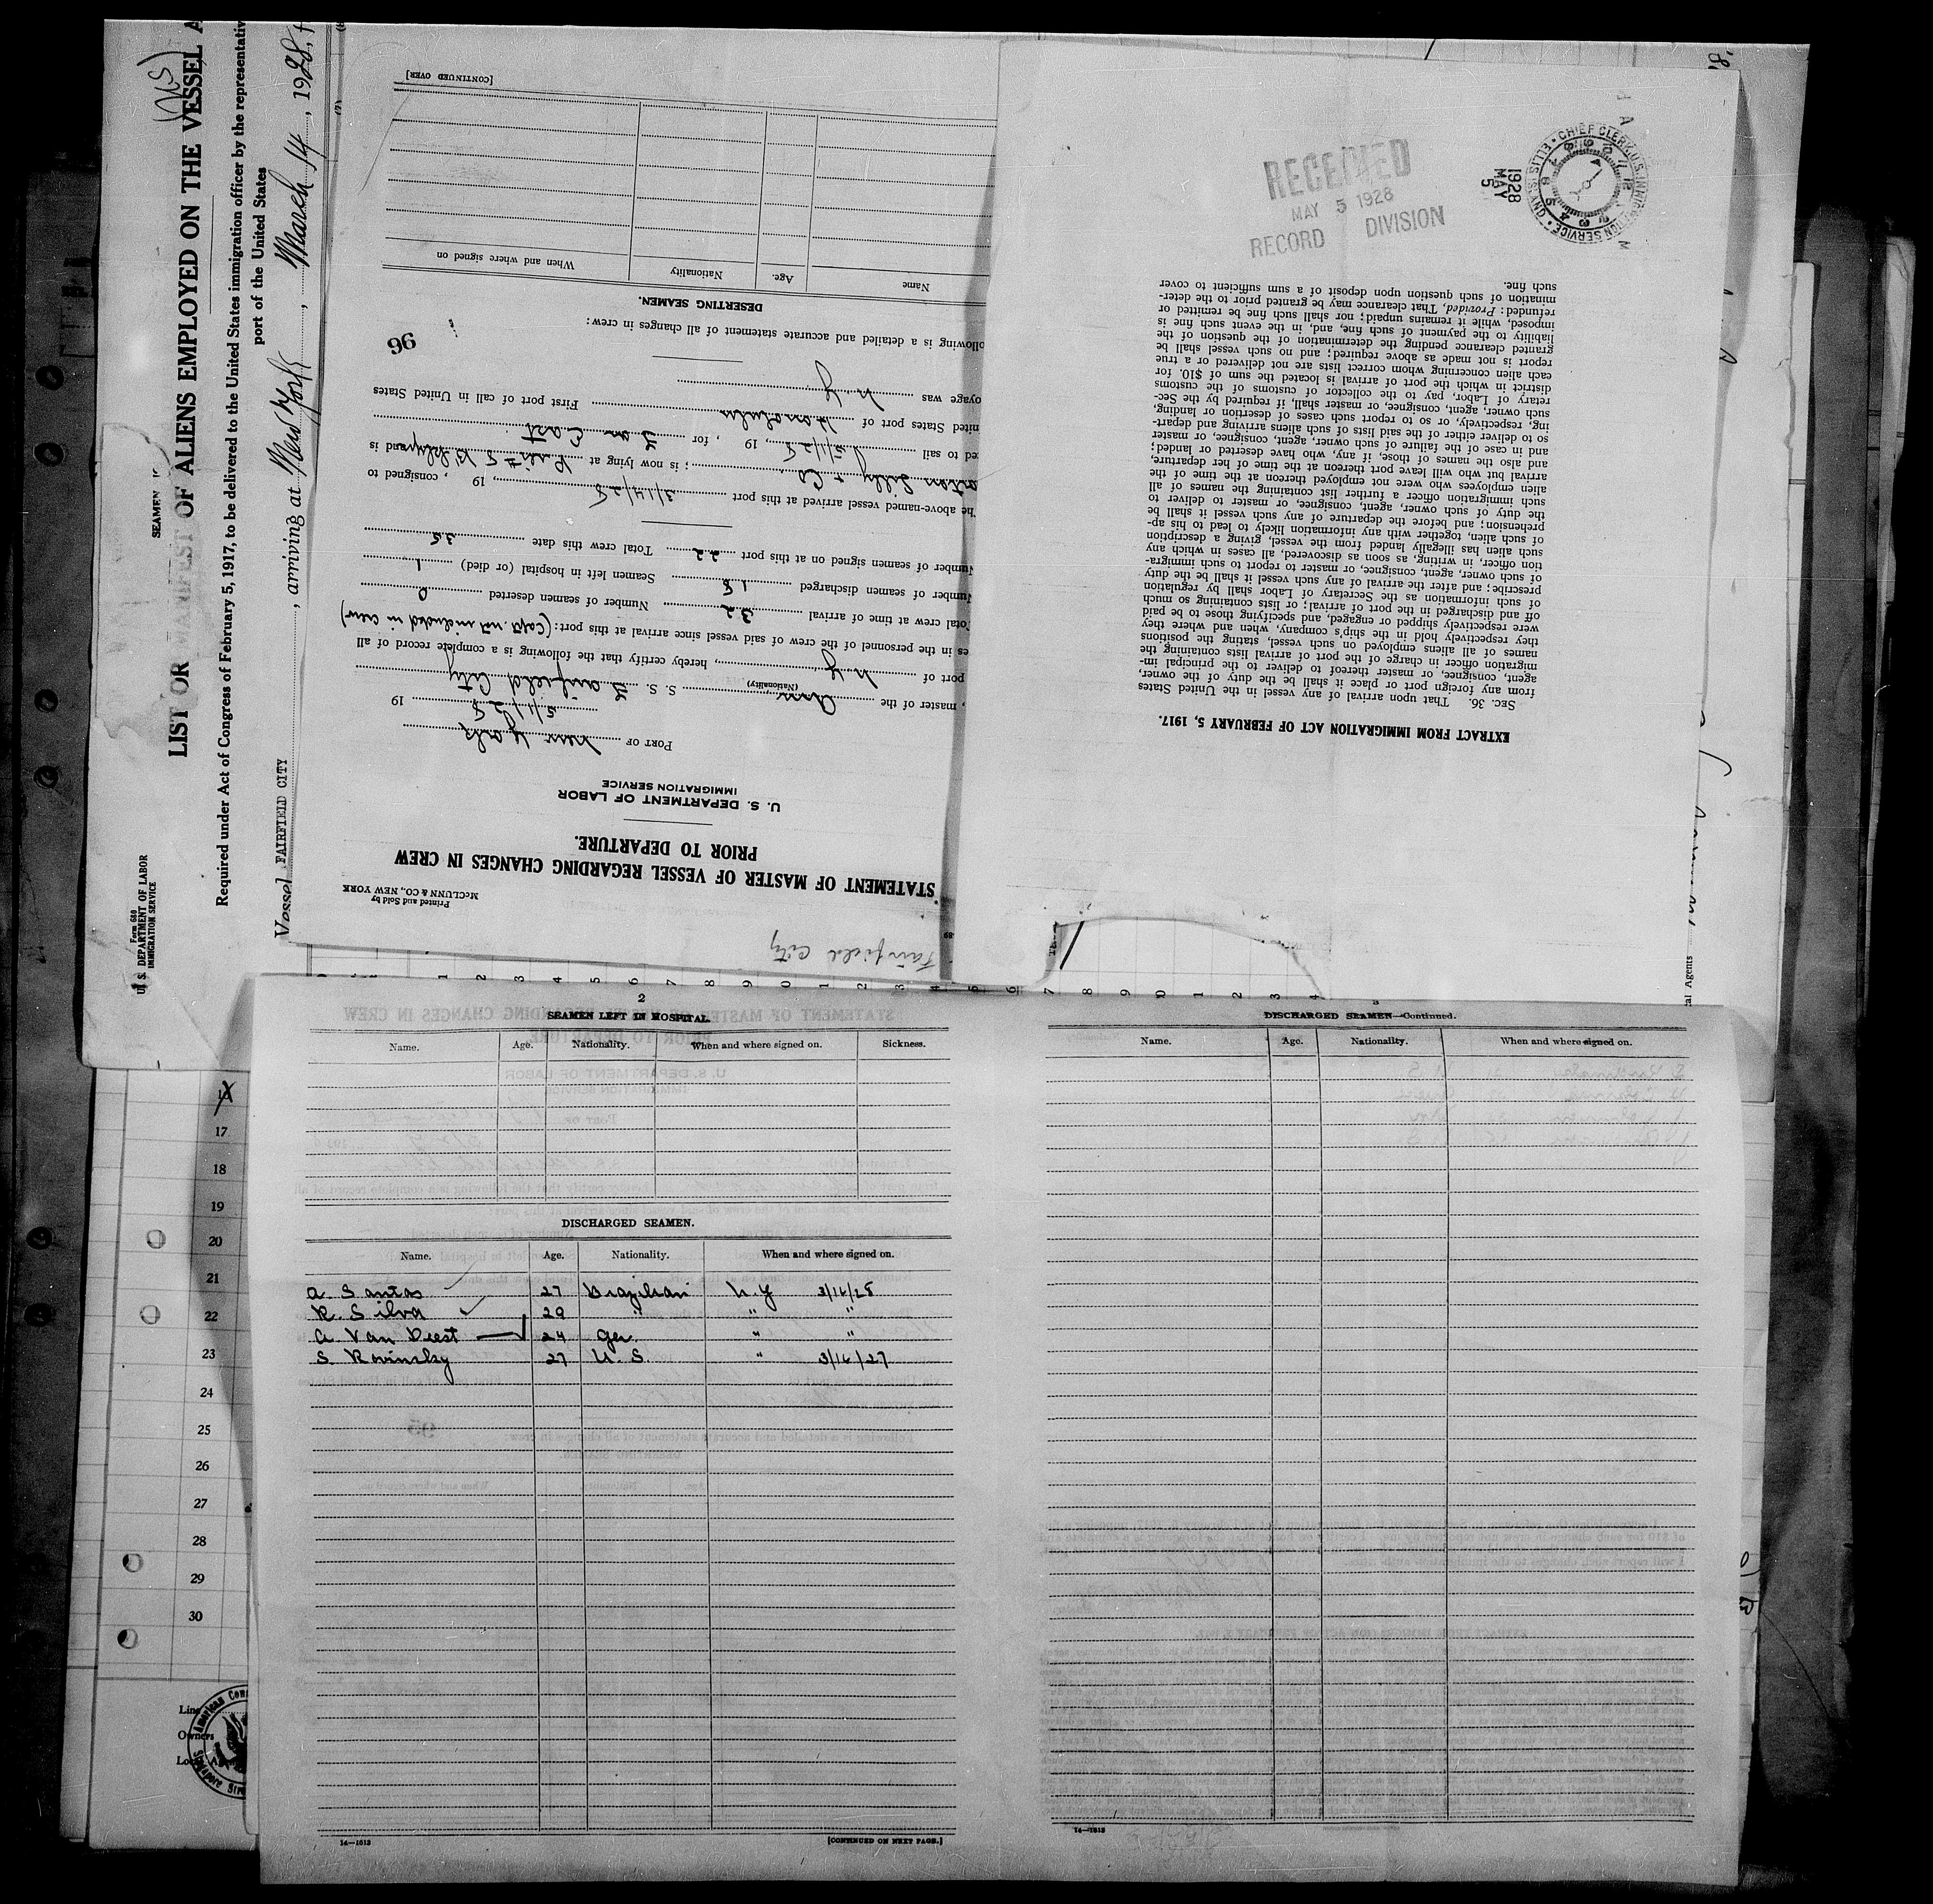 SEAMEN
(US)
LIST OR MANIFEST OF ALIENS EMPLOYED ON THE VESSEL A
Required under Act of Congress of February 5, 1917, to be delivered to the United States immigration officer by the representativ
port of the United States
Vessel FAIRFIELD CITY, arriving at New York, March 14, 1928, f
Form 680
U. S. DEPARTMENT OF LABOR
IMMIGRATION SERVICE
Fairfield City
Printed and Sold by
McCLUNN & CO., NEW YORK
STATEMENT OF MASTER OF VESSEL REGARDING CHANGES IN CREW
PRIOR TO DEPARTURE.
U. S. DEPARTMENT OF LABOR
IMMIGRATION SERVICE
PORT OF New York
5/1/28 19
, master of the Am (Nationality) S. S. Fairfield City
port of N Y, hereby certify that the following is a complete record of all
es in the personnel of the crew of said vessel since arrival at this port: (Capt. not included in crew)
Total crew at time of arrival 32 Number of seamen deserted 0
Number of seamen discharged 18 Seamen left in hospital (or died) 1
Number of seamen signed on at this port 22 Total crew this date 35
he above-named vessel arrived at this port 3/14/28, 19 , consigned to
Lilly & Co.; is now lying at Pier # 5 Bklyn and is
ted to sail 5/1/28, 19 , for Far East
nited States port of Honolulu First port of call in United States
oyage was N Y
ollowing is a detailed and accurate statement of all changes in crew:
96
DESERTING SEAMEN.
Name Age. Nationality When and where signed on
[CONTINUED OVER]
EXTRACT FROM IMMIGRATION ACT OF FEBRUARY 5, 1917.
SEC. 36. That upon arrival of any vessel in the United States
from any foreign port or place it shall be the duty of the owner,
agent, consignee, or master thereof to deliver to the principal im-
migration officer in charge of the port of arrival lists containing the
names of all aliens employed on such vessel, stating the positions
they respectively hold in the ship's company, when and where they
were respectively shipped or engaged, and specifying those to be paid
off and discharged in the port of arrival; or lists containing so much
of such information as the Secretary of Labor shall by regulation
prescribe; and after the arrival of any such vessel it shall be the duty
of such owner, agent, consignee, or master to report to such immigra-
tion officer, in writing, as soon as discovered, all cases in which any
such alien has illegally landed from the vessel, giving a description
of such alien, together with any information likely to lead to his ap-
prehension; and before the departure of any such vessel it shall be
the duty of such owner, agent, consignee, or master to deliver to
such immigration officer a further list containing the names of all
alien employees who were not employed thereon at the time of the
arrival but who will leave port thereon at the time of her departure,
and also the names of those, if any, who have deserted or landed;
and in case of the failure of such owner, agent, consignee, or master
so to deliver either of the said lists of such aliens arriving and depart-
ing, respectively, or so to report such cases of desertion or landing,
such owner, agent, consignee, or master, shall, if required by the Sec-
retary of Labor, pay to the collector of customs of the customs
district in which the port of arrival is located the sum of $10. for
each alien concerning whom correct lists are not delivered or a true
report is not made as above required; and no such vessel shall be
granted clearance pending the determination of the question of the
liability to the payment of such fine, and, in the event such fine is
imposed, while it remains unpaid; nor shall such fine be remitted or
refunded: Provided, That clearance may be granted prior to the deter-
mination of such question upon deposit of a sum sufficient to cover
such fine.
RECEIVED
MAY 5 1928
RECORD DIVISION
CHIEF CLERK U.S. IMMIGRATION SERVICE · ELLIS ISLAND
1928
MAY
5
al Agents
17
18
19
20
21
22
23
24
25
26
27
28
29
30
Line
Owners
American Con
Singapore Str
2
SEAMEN LEFT IN HOSPITAL.
Name. Age. Nationality. When and where signed on. Sickness.
DISCHARGED SEAMEN.
Name. Age. Nationality. When and where signed on.
A. Santos 27 Brazilian N.Y 3/16/28
R. Silva 29 " " "
A Van Diest 24 Ger. " "
S. Rovinsky 27 U. S. " 3/16/27
14—1813
[CONTINUED ON NEXT PAGE.]
DISCHARGED SEAMEN—Continued.
Name. Age. Nationality. When and where signed on.
14—1813